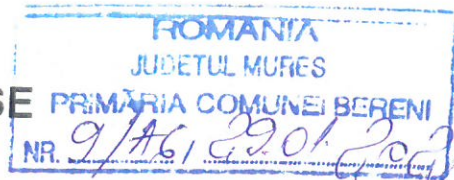 ROMÂNIA
JUDETUL MURES
SE PRIMĂRIA COMUNEI BERENI
NR. 9/A6, 29.01.202